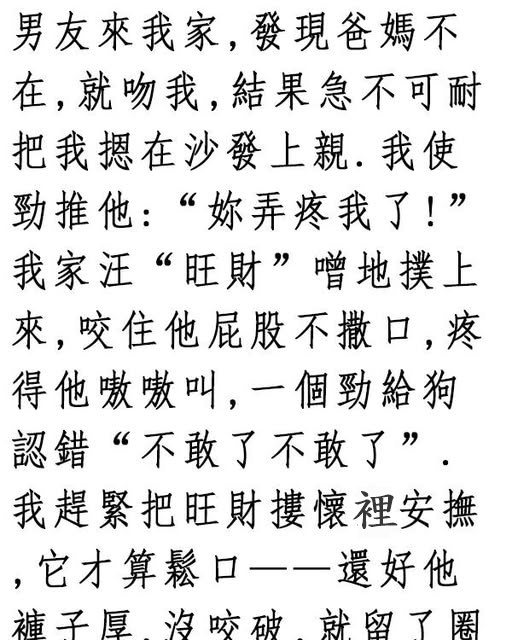 男友來我家,發現爸媽不
在,就吻我,結果急不可耐
把我摁在沙發上親.我使
勁推他:“妳弄疼我了!”
我家汪“旺財”噌地撲上
來,咬住他屁股不撒口,疼
得他嗷嗷叫,一個勁給狗
認錯“不敢了不敢了”.
我趕緊把旺財摟懷裡安撫
,它才算鬆口——還好他
褲子厚,沒咬破,就留了圈